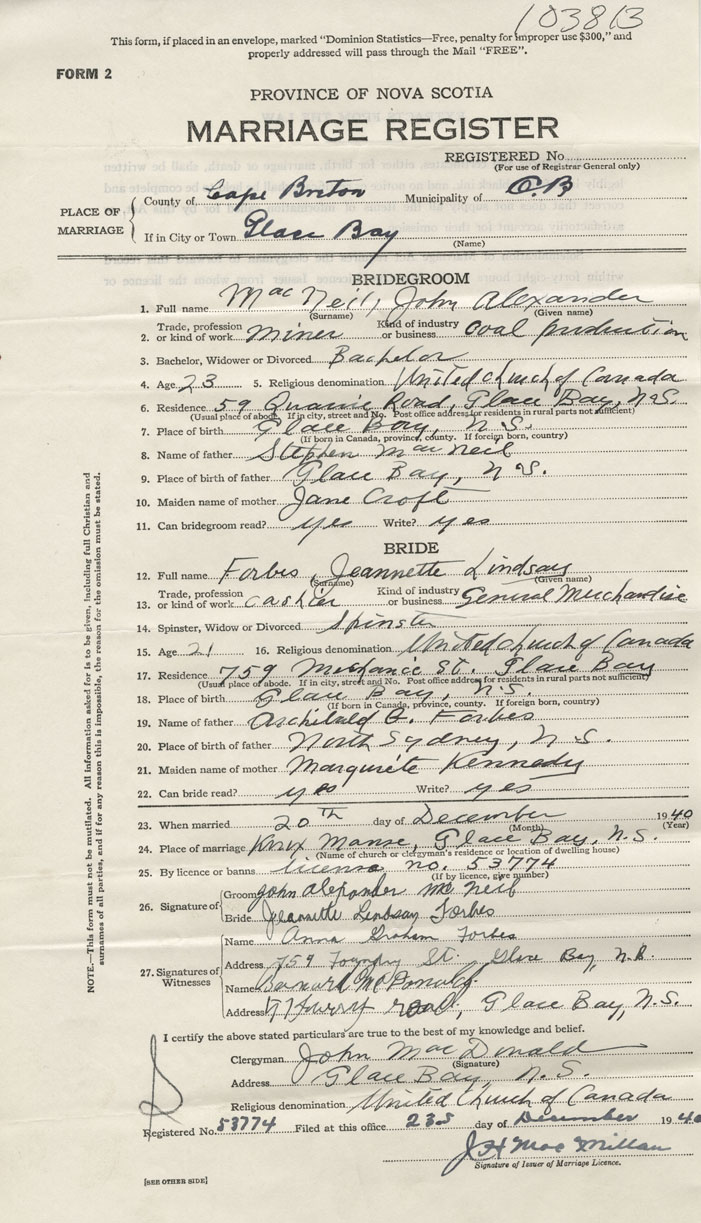 103813
This form, if placed in an envelope, marked "Dominion Statistics—Free, penalty for improper use $300," and
properly addressed will pass through the Mail "FREE".
FORM 2
PROVINCE OF NOVA SCOTIA
MARRIAGE REGISTER
REGISTERED No
(For use of Registrar General only)
PLACE OF MARRIAGE
County of Cape Breton Municipality of C.B
If in City or Town Glace Bay
(Name)
BRIDEGROOM
1. Full name MacNeil, John Alexander
(Surname) (Given name)
2. Trade, profession or kind of work miner Kind of industry or business coal production
3. Bachelor, Widower or Divorced Bachelor
4. Age 23 5. Religious denomination United Church of Canada
6. Residence 59 Road, Glace Bay, N.S.
(Usual place of abode. If in city, street and No. Post office address for residents in rural parts not sufficient)
7. Place of birth Glace Bay, N.S.
(If born in Canada, province, county. If foreign born, country)
8. Name of father Stephen MacNeil
9. Place of birth of father Glace Bay, N.S.
10. Maiden name of mother Jane Croft
11. Can bridegroom read? yes Write? yes
BRIDE
12. Full name Forbes, Jeannette Lindsay
(Surname) (Given name)
13. Trade, profession or kind of work cashier Kind of industry or business General Merchandise
14. Spinster, Widow or Divorced Spinster
15. Age 21 16. Religious denomination United Church of Canada
17. Residence 759 Mechanic St. Glace Bay
(Usual place of abode. If in city, street and No. Post office address for residents in rural parts not sufficient)
18. Place of birth Glace Bay, N.S.
(If born in Canada, province, county. If foreign born, country)
19. Name of father Archibald G. Forbes
20. Place of birth of father North Sydney, N.S.
21. Maiden name of mother Margurite Kennedy
22. Can bride read? yes Write? yes
23. When married 20th day of December 1940
(Month) (Year)
24. Place of marriage Knox Manse, Glace Bay, N.S.
(Name of church or clergyman's residence or location of dwelling house)
25. By licence or banns license no. 53774
(If by licence, give number)
26. Signature of
Groom John Alexander McNeil
Bride Jeannette Lindsay Forbes
27. Signatures of Witnesses
Name Anna Graham Forbes
Address 759 St. Glace Bay, N.S.
Name McDonald
Address road, Glace Bay, N.S.
I certify the above stated particulars are true to the best of my knowledge and belief.
Clergyman John MacDonald
(Signature)
Address Glace Bay, N.S.
Religious denomination United Church of Canada
Registered No. 53774 Filed at this office 23 day of December 1940
J H MacMillan
Signature of Issuer of Marriage Licence.
[SEE OTHER SIDE]
NOTE.—This form must not be mutilated. All information asked for is to be given, including full Christian and
surnames of all parties, and if for any reason this is impossible, the reason for the omission must be stated.